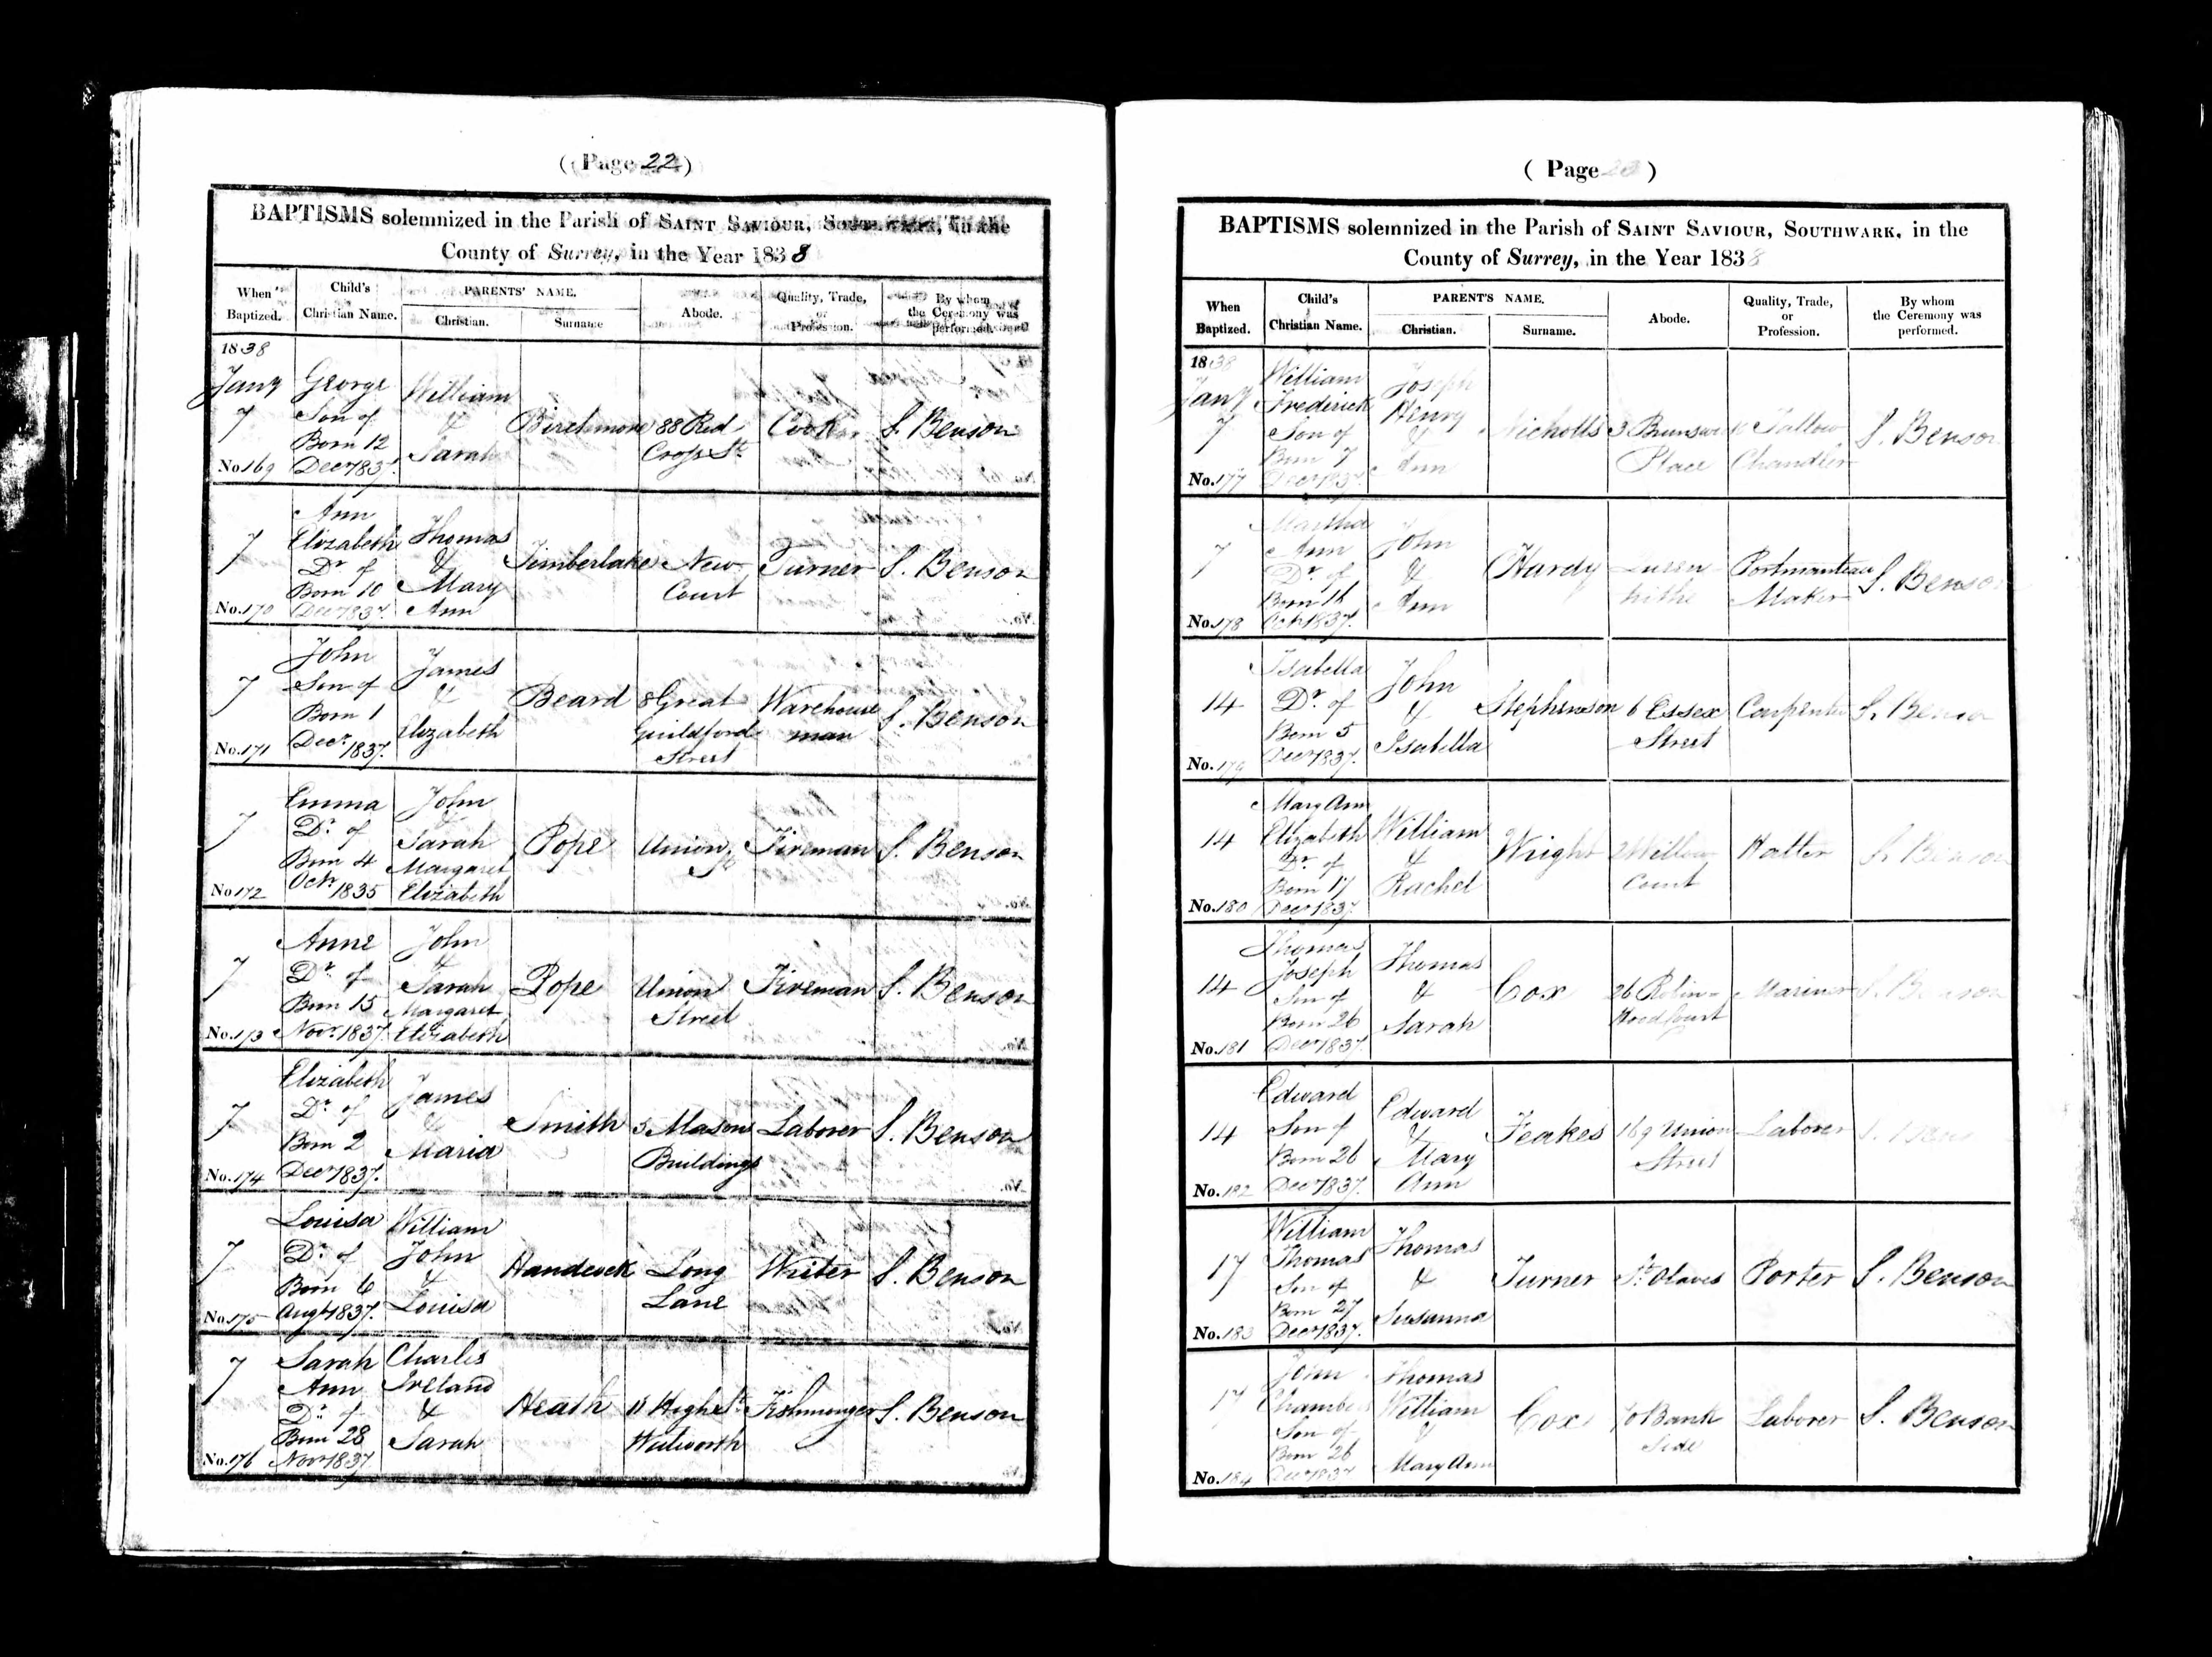 ( Page 22 )
BAPTISMS solemnized in the Parish of SAINT SAVIOUR, in the
County of Surrey, in the Year 1838
When Baptized.
Child's Christian Name.
PARENTS' NAME.
Christian.
Surname
Abode.
Quality, Trade, or Profession.
By whom the Ceremony was performed.
1838
Jany 7
No. 169
George
Son of
Born 12
Decr 1837.
William
&
Sarah
Birchmore
88 Red
Cross St.
Cook
S. Benson
7
No. 170
Ann
Elizabeth
Dr. of
Born 10
Decr 1837.
Thomas
&
Mary
Ann
Timberlake
New
Court
Turner
S. Benson
7
No. 171
John
Son of
Born 1
Decr. 1837.
James
&
Elizabeth
Beard
8 Great
Guildford
Street
Warehouse
man
S. Benson
7
No. 172
Emma
Dr. of
Born 4
Octr 1835
John
&
Sarah
Margaret
Elizabeth
Pope
Union
St
Fireman
S. Benson
7
No. 173
Anne
Dr. of
Born 15
Novr. 1837.
John
&
Sarah
Margaret
Elizabeth
Pope
Union
Street
Fireman
S. Benson
7
No. 174
Elizabeth
Dr. of
Born 2
Decr 1837.
James
&
Maria
Smith
3 Mason
Buildings
Laborer
S. Benson
7
No. 175
Louisa
Dr. of
Born 6
Augt 1837.
William
John
&
Louisa
Long
Lane
Writer
S. Benson
7
No. 176
Sarah
Ann
Dr. of
Born 28
Novr 1837
Charles
Ireland
&
Sarah
Heath
High St.
Fishmonger
S. Benson
( Page )
BAPTISMS solemnized in the Parish of SAINT SAVIOUR, SOUTHWARK, in the
County of Surrey, in the Year 1838
When Baptized.
Child's Christian Name.
PARENT'S NAME.
Christian.
Surname.
Abode.
Quality, Trade, or Profession.
By whom the Ceremony was performed.
1838
Jany 7
No. 177
William
Frederick
Son of
Born 7
Decr 1837.
Joseph
Henry
&
Ann
Nicholls
3 Brunswick
Place
Tallow
Chandler
S. Benson
7
No. 178
Martha
Ann
Dr. of
Born 16
Octr 1837.
John
&
Ann
Hardy
Queen
hithe
Portmanteau
Maker
S. Benson
14
No. 179
Isabella
Dr. of
Born 5
Decr 1837.
John
&
Isabella
Stephenson
6 Essex
Street
Carpenter
S. Benson
14
No. 180
Mary Ann
Elizabeth
Dr. of
Born 17
Decr 1837
William
&
Rachel
Wright
2 Willow
Court
Hatter
S. Benson
14
No. 181
Thomas
Joseph
Son of
Born 26
Decr 1837.
Thomas
&
Sarah
Cox
26 Robin
Hood Court
Mariner
S. Benson
14
No. 182
Edward
Son of
Born 26
Decr 1837.
Edward
&
Mary
Ann
Feakes
169 Union
Street
Laborer
S. Benson
17
No. 183
William
Thomas
Son of
Born 27
Decr 1837.
Thomas
&
Susanna
Turner
St. Olaves
Porter
S. Benson
17
No. 184
John
Chambers
Son of
Born 26
Decr 1837
Thomas
William
&
Mary Ann
Cox
70 Bank
Side
Laborer
S. Benson